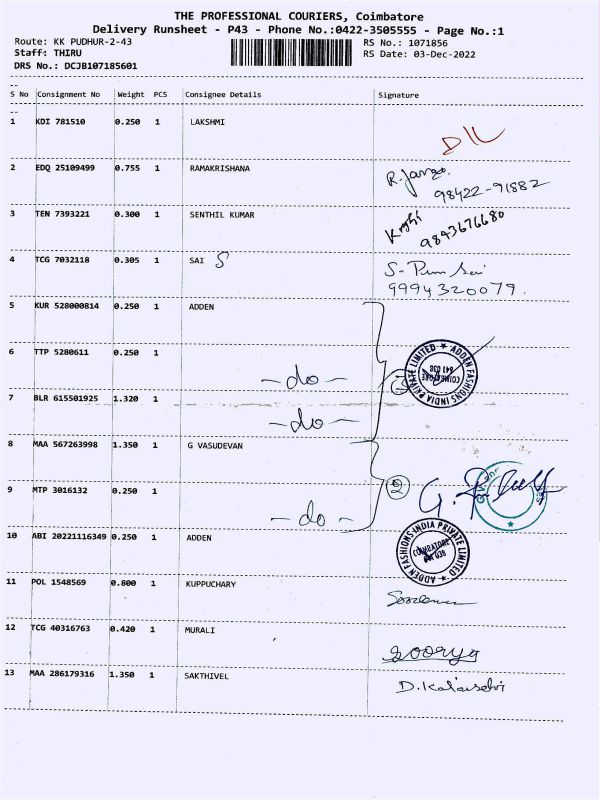 THE PROFESSIONAL COURIERS, Coimbatore
Delivery Runsheet - P43 - Phone No.:0422-3505555 - Page No.:1
Route: KK PUDHUR-2-43 RS No.: 1071856
Staff: THIRU RS Date: 03-Dec-2022
DRS No.: DCJB107185601
S No Consignment No Weight PCS Consignee Details Signature
1 KDI 781510 0.250 1 LAKSHMI
2 EDQ 25109499 0.755 1 RAMAKRISHANA
98422-91882
3 TEN 7393221 0.300 1 SENTHIL KUMAR
9843676680
4 TCG 7032118 0.305 1 SAI S
9994320079.
5 KUR 528000814 0.250 1 ADDEN
6 TTP 5280611 0.250 1
-do-
ADDEN FASHIONS INDIA PRIVATE LIMITED
COIMBATORE
641 038
7 BLR 615501925 1.320 1
-do-
8 MAA 567263998 1.350 1 G VASUDEVAN
2
9 MTP 3016132 0.250 1
-do-
10 ABI 20221116349 0.250 1 ADDEN
ADDEN FASHIONS INDIA PRIVATE LIMITED
COIMBATORE
641 038
11 POL 1548569 0.800 1 KUPPUCHARY
12 TCG 40316763 0.420 1 MURALI
Soorya
13 MAA 286179316 1.350 1 SAKTHIVEL
D.Kalaiselvi